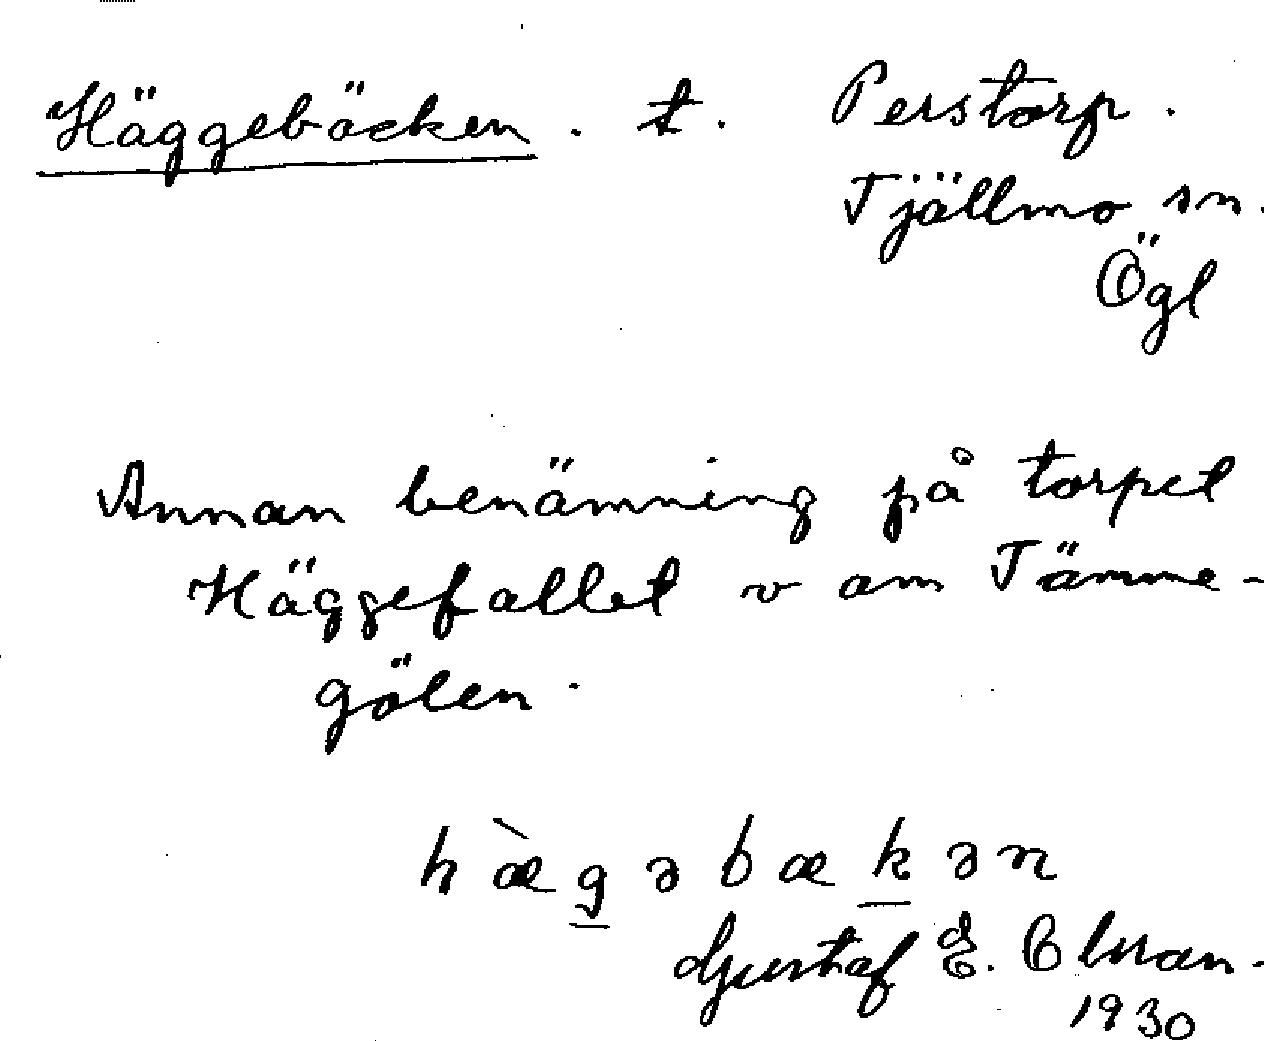 Häggebäcken. t. Perstorp.
Tjällmo sn.
Ögl
Annan benämning på torpet
Häggefallet v om Tämme-
gölen.
hæ̀g̲əbæk̲ən
Gustaf E. Olsson.
1930